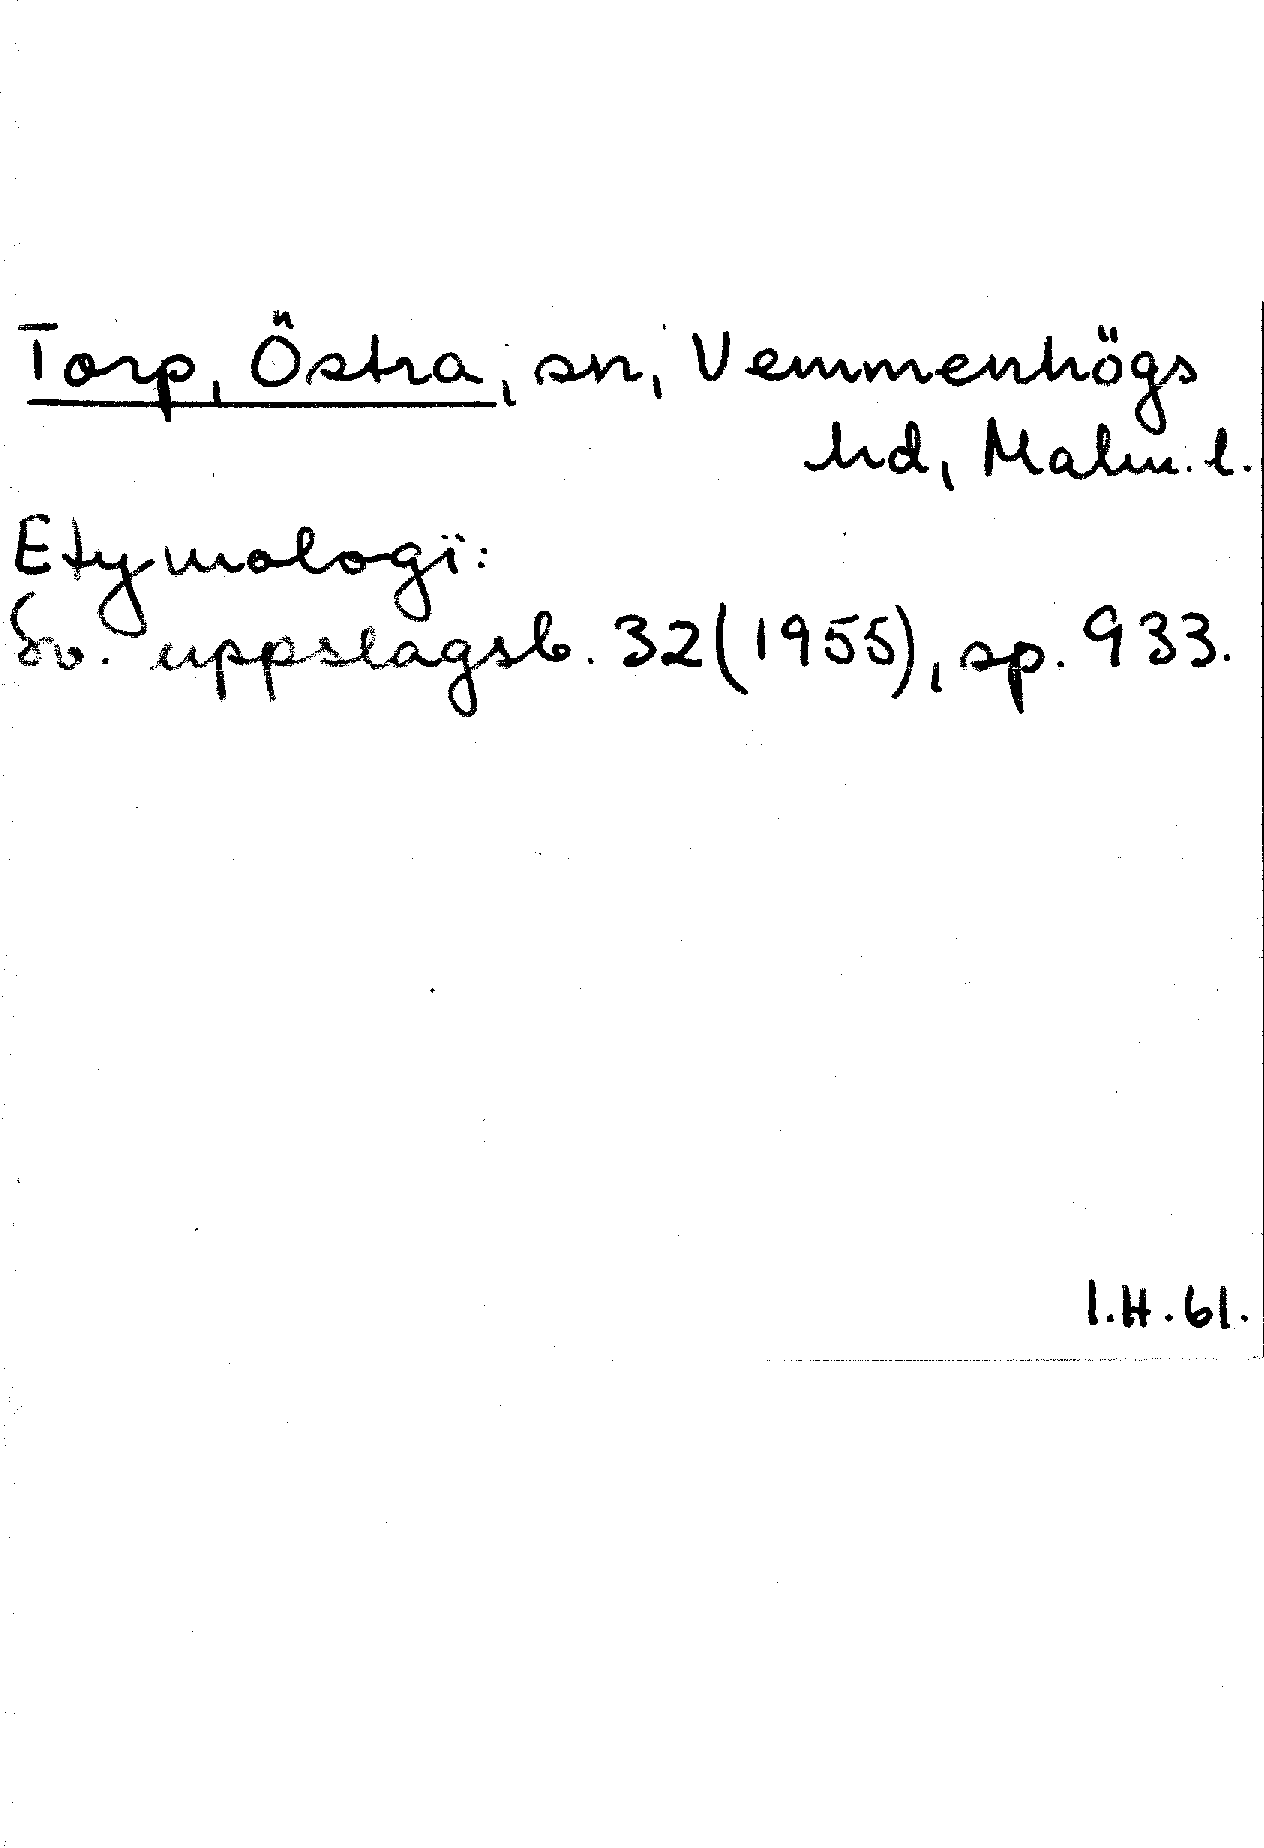 Torp, Östra, sn, Vemmenhögs
hd, Malm. l.
Etymologi:
Sv. uppslagsb. 32(1955), sp. 933.
I.H.61.